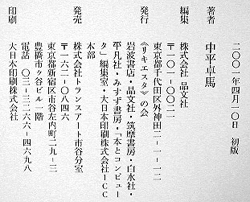 二〇〇一年四月一〇日 初版
著者 中平卓馬
編集 株式会社 晶文社
〒一〇一-〇〇二一
東京都千代田区外神田二-一-一二
発行 《リキエスタ》の会
岩波書店・晶文社・筑摩書房・白水社・
平凡社・みすず書房・「本とコンピュー
タ」編集室・大日本印刷株式会社ICC
本部
発売 株式会社トランスアート市谷分室
〒一六二-〇八四六
東京都新宿区市谷左内町二九-三
豊橋市ヶ谷ビル一階
電話〇三-三二六六-四六九八
印刷 大日本印刷株式会社